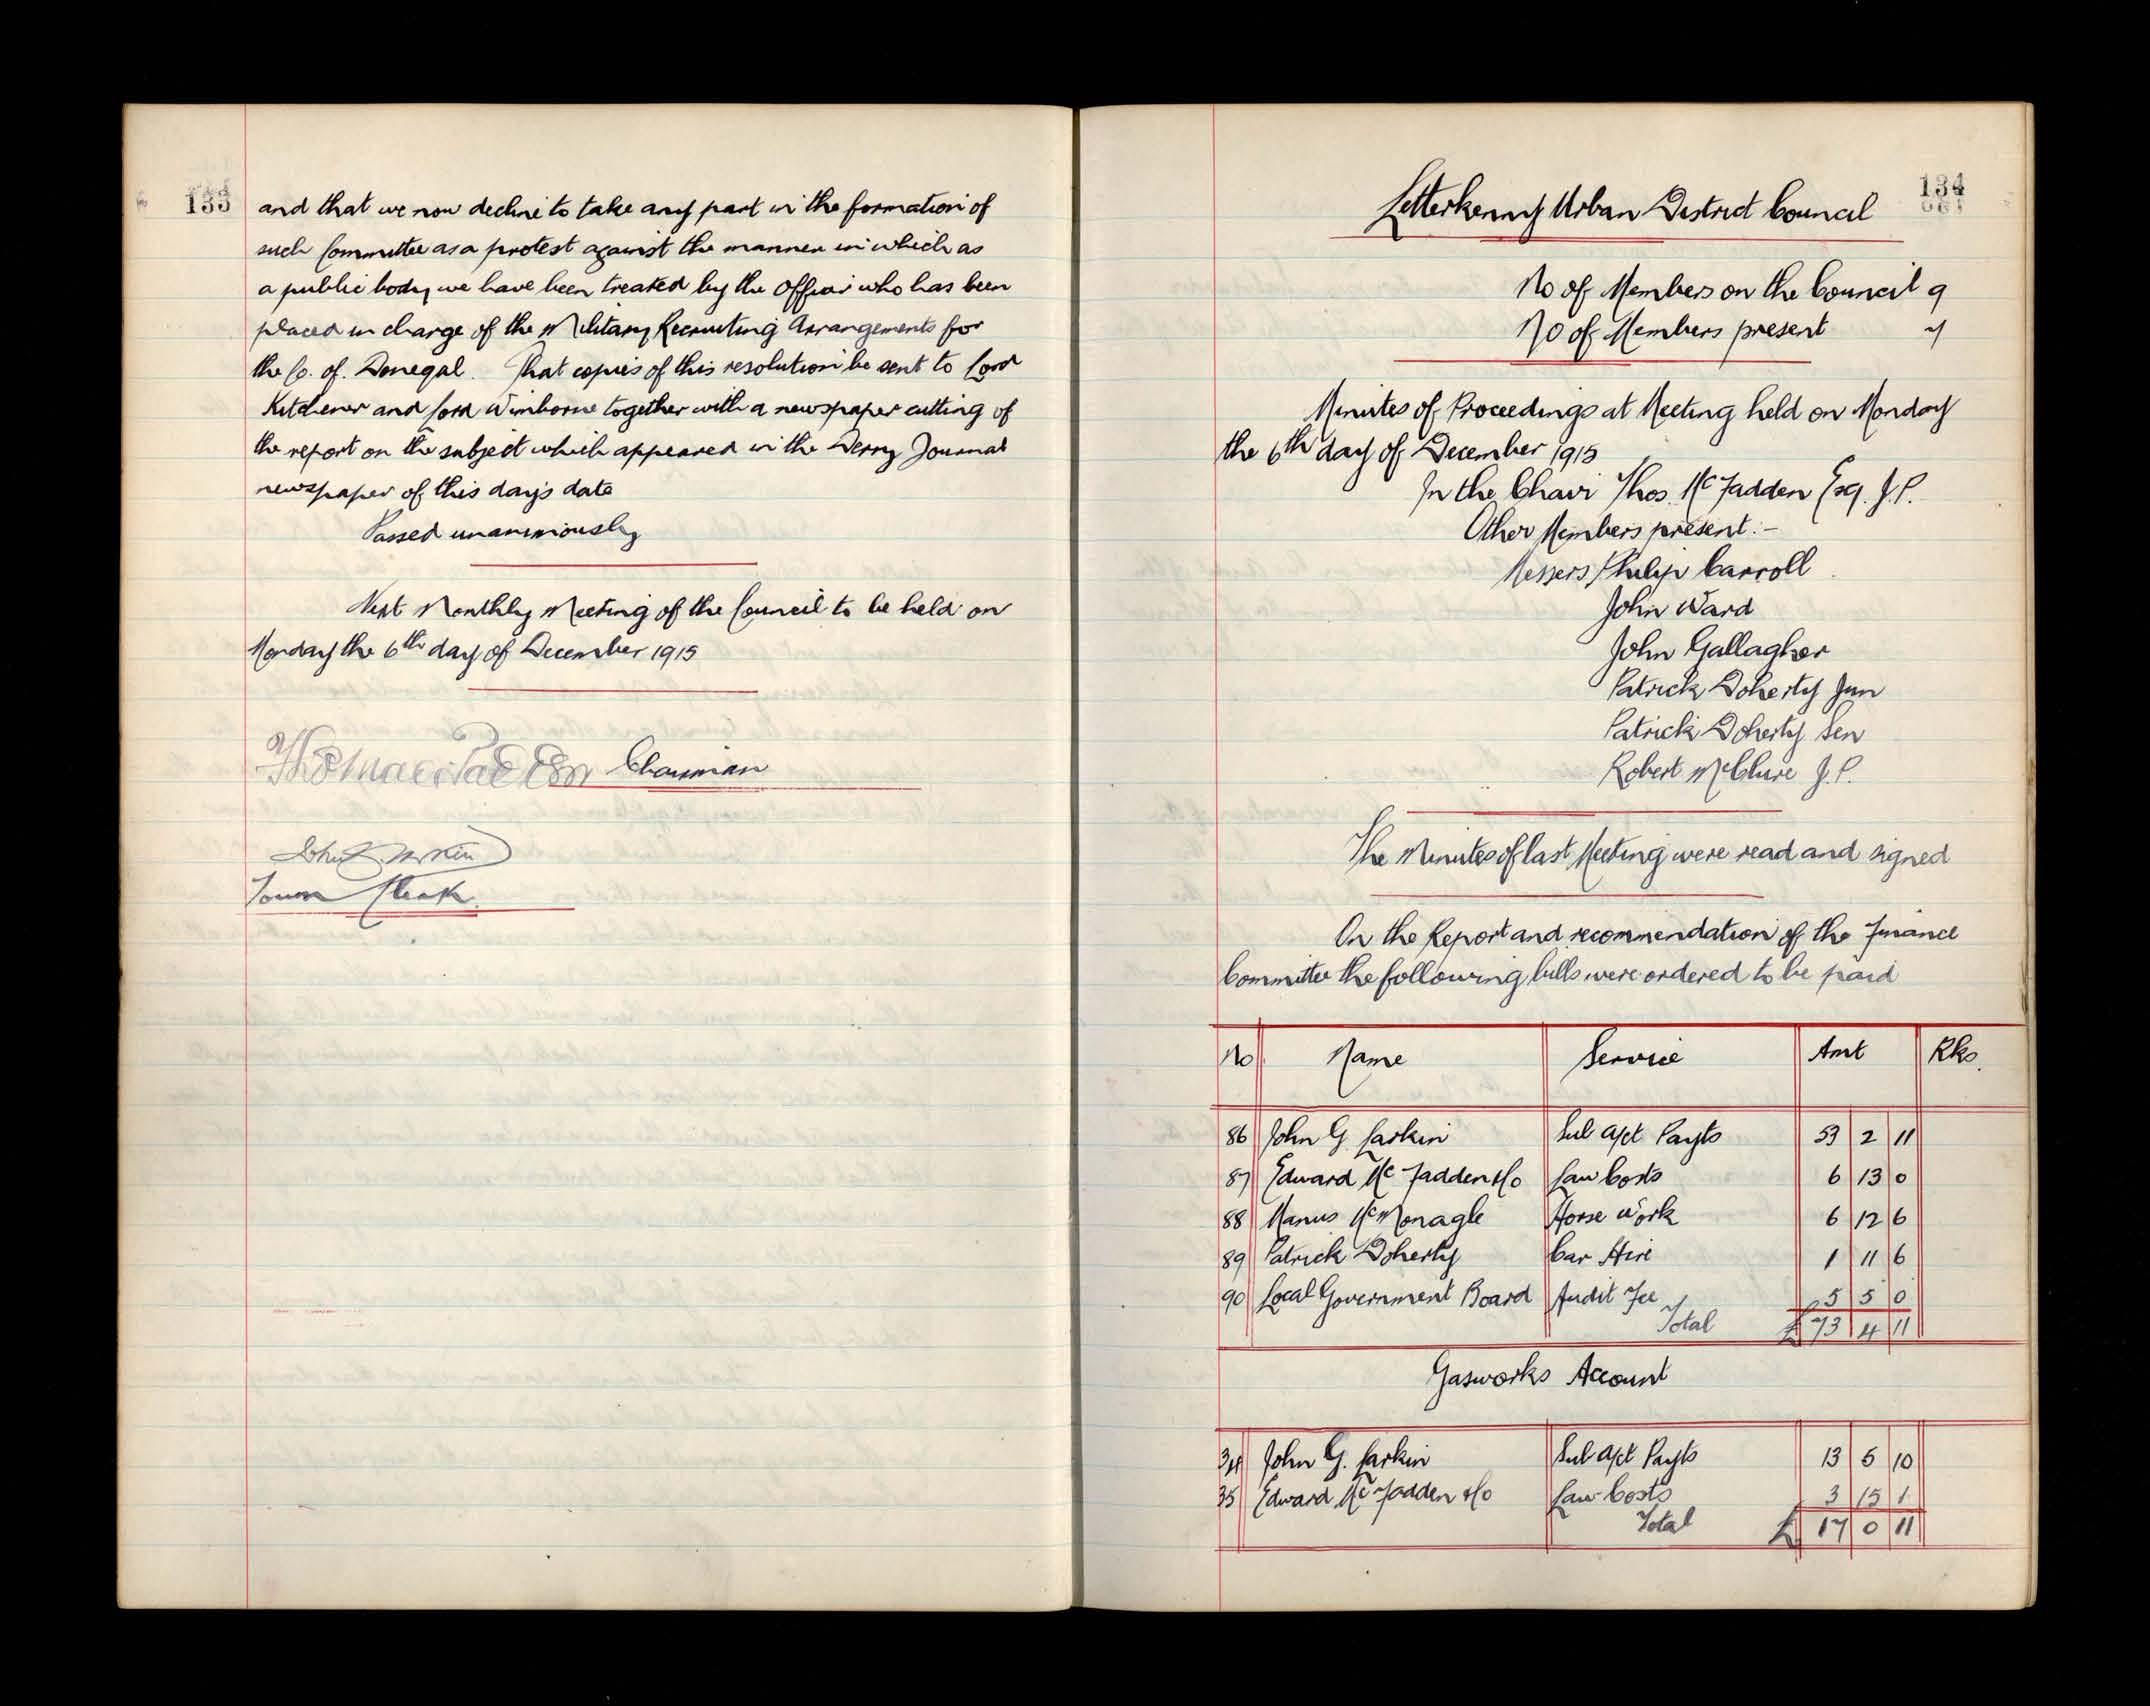 133
and that we now decline to take any part in the formation of
such Committee as a protest against the manner in which as
a public body we have been treated by the Officer who has been
placed in charge of the Military Recruiting Arrangements for
the Co. of. Donegal. That copies of this resolution be sent to Lord
Kitchener and Lord Wimborne together with a newspaper cutting of
the report on the subject which appeared in the Derry Journal
newspaper of this day's date
Passed unanimously
Next Monthly Meeting of the Council to be held on
Monday the 6th day of December 1915
Chairman
Town Clerk
134
Letterkenny Urban District Council
No of Members on the Council 9
No of Members present 7
Minutes of Proceedings at Meeting held on Monday
the 6th day of December 1915
In the Chair Thos. McFadden Esq. J.P.
Other Members present:-
Messers Philip Carroll
John Ward
John Gallagher
Patrick Doherty Jun
Patrick Doherty Sen
Robert McClure J.P.
The Minutes of last Meeting were read and signed
On the Report and recommendation of the Finance
Committee the following bills were ordered to be paid
No Name Service Amt Rks.
86 John G Larkin Sub a/ct Payts 53 2 11
87 Edward McFadden & Co Law Costs 6 13 0
88 Manus McMonagle Horse Work 6 12 6
89 Patrick Doherty Car Hire 1 11 6
90 Local Government Board Audit Fee 5 5 0
Total £ 73 4 11
Gasworks Account
34 John G. Larkin Sub a/ct Payts 13 5 10
35 Edward McFadden & Co Law Costs 3 15 1
Total £ 17 0 11